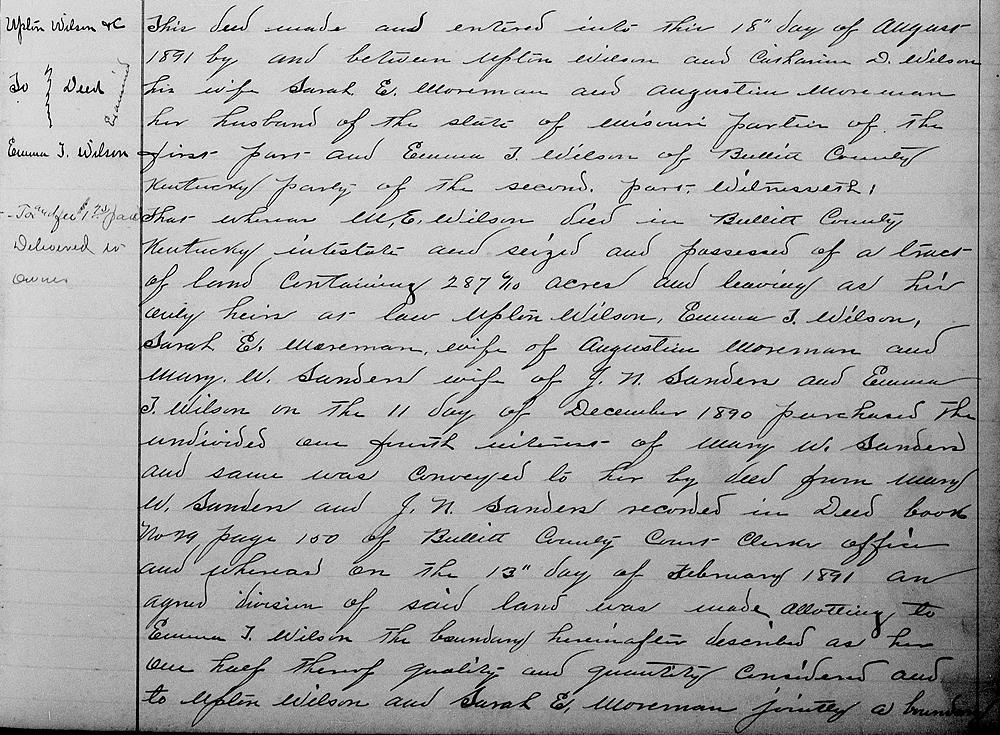 Upton Wilson &C
To } Deed
Examined
Emma T. Wilson
Tax and fee $1.75 paid
Delivered to
owner
This deed made and entered into this 18" day of August
1891 by and between Upton Wilson and Catharine D. Wilson
his wife Sarah E. Moreman and Augustine Moreman
her husband of the state of Misouri parties of the
first part and Emma T. Wilson of Bullitt County
Kentucky party of the second. part. Witnesseth,
That whereas M, E, Wilson died in Bullitt County
Kentucky intestate and seized and possessed of a tract
of land Containing 287 6/10 acres and leaving as his
only heirs at law Upton Wilson, Emma T. Wilson,
Sarah E. Moreman, wife of Augustine Moreman and
Mary. W. Sanders wife of J. N. Sanders and Emma
T. Wilson on the 11 day of December 1890 purchased the
undivided one fourth interest of Mary W. Sanders
and same was Conveyed to her by deed from Mary
W. Sanders and J. N. Sanders recorded in Deed book
No 29 page 150 of Bullitt County Court Clerks office
and whereas on the 13" day of February 1891 an
agreed division of said land was made, allotting to
Emma T. Wilson the boundary hereinafter described as her
one half thereof quality and quantity Considered and
to Upton Wilson and Sarah E. Moreman jointly a boundary